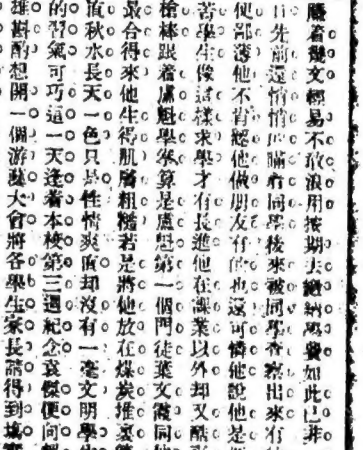 賸着幾文輕易不敢浪用按期去繳納學費如此已非
日先前還悄悄的瞞着同學後來被同學查察出來有
便鄙薄他不肯認他做朋友有的也還可憐他說他是
苦學生像這樣求學才有長進他在課業以外却又酷
槍棒跟着盧魁學拳算是盧魁第一個門徒葉文霞同
最合得來他生得肌膚粗糙若是將他放在煤炭堆裏
直秋水長天一色只是性情爽直却沒有一毫文明學
的習氣可巧這一天逢着本校第三週紀念袁傑便向
雄斟酌想開一個游藝大會將各學生家長請得到塲